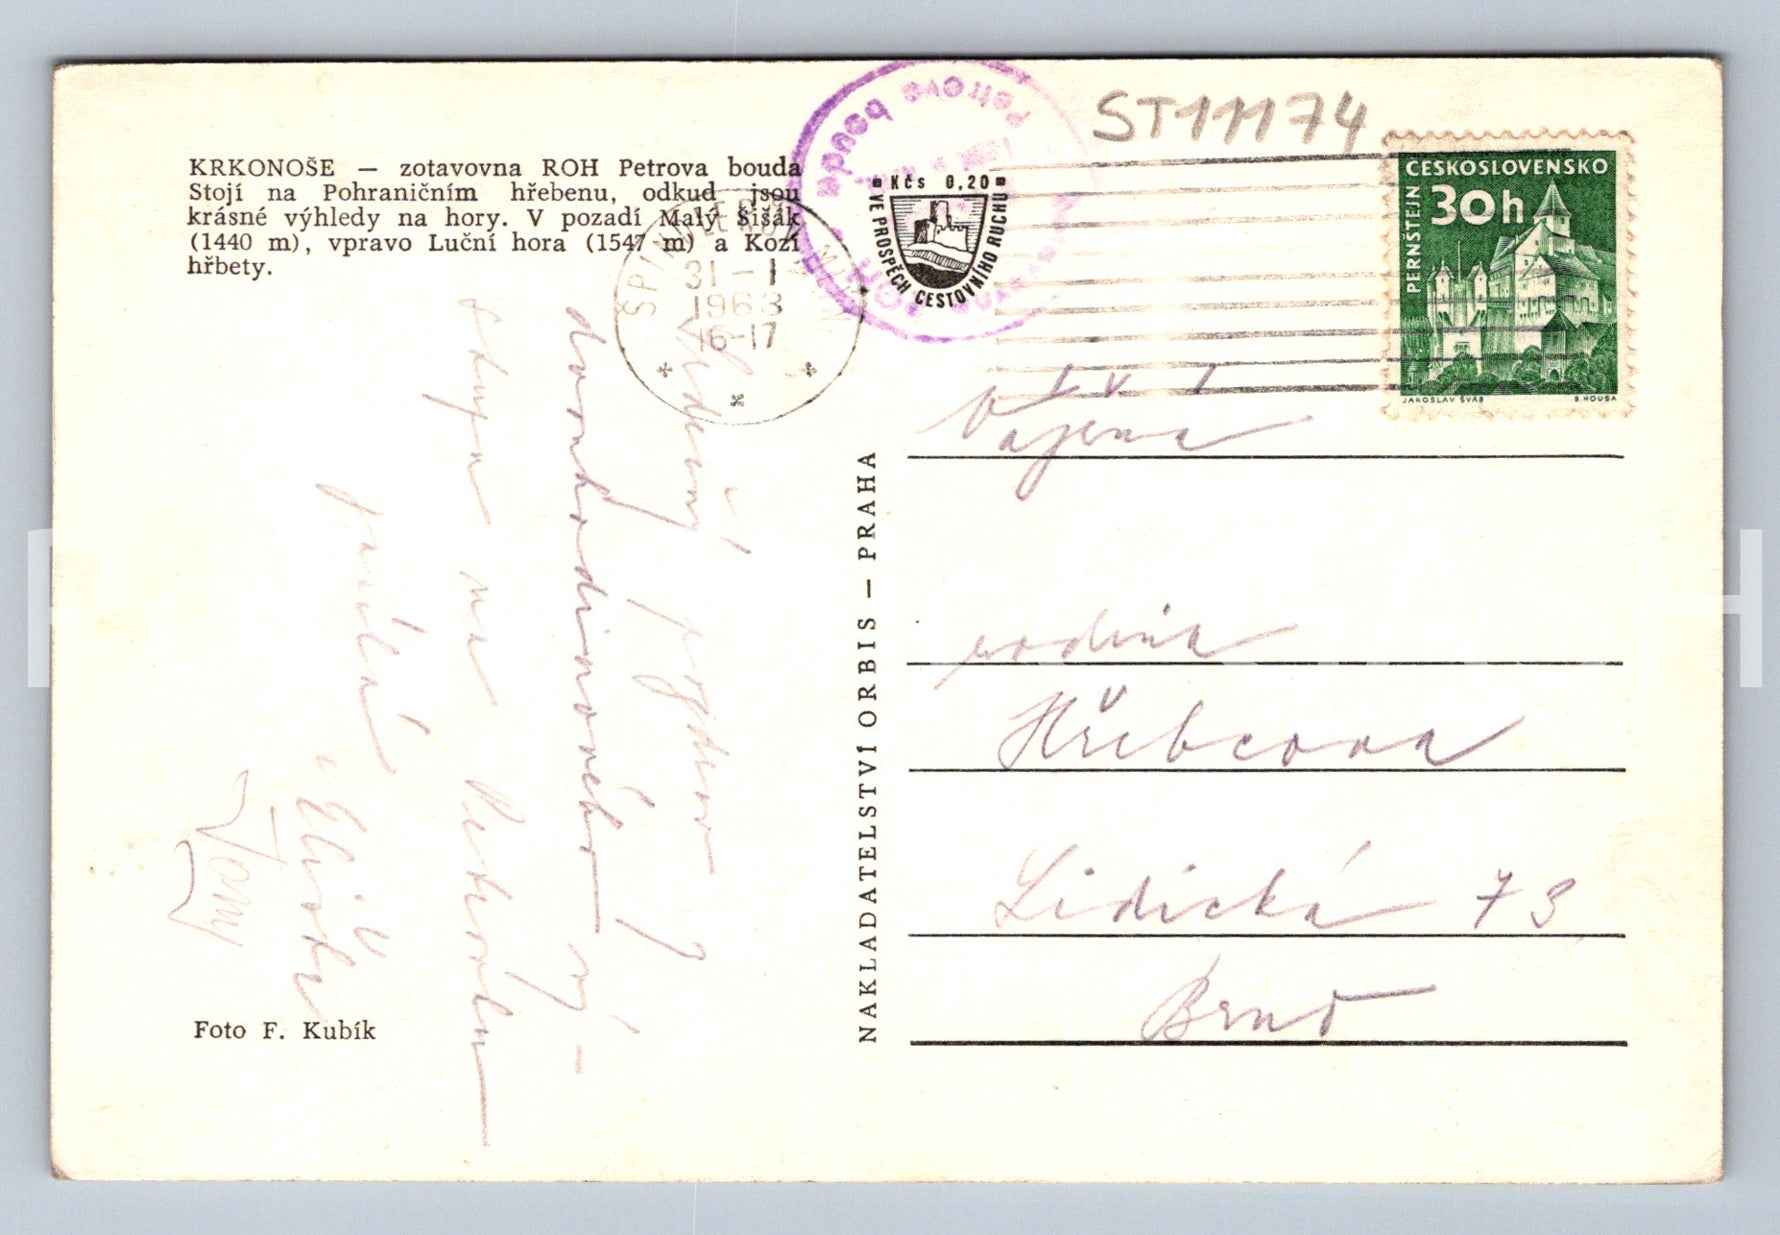 KRKONOŠE — zotavovna ROH Petrova bouda
Stojí na Pohraničním hřebenu, odkud jsou
krásné výhledy na hory. V pozadí Malý Šišák
(1440 m), vpravo Luční hora (1547 m) a Kozí
hřbety.
Foto F. Kubík
NAKLADATELSTVÍ ORBIS — PRAHA
Petrova bouda
ŠPINDLERŮV MLÝN
31 – 1
1963
16-17
Kčs 0,20
VE PROSPĚCH CESTOVNÍHO RUCHU
ST11174
ČESKOSLOVENSKO
30h
PERNŠTEJN
JAROSLAV ŠVÁB
B. HOUSA
Vážená
rodina
Hřebcova
Lidická 73
Brno
Srdečný pozdrav z
dvouhodinového vý-
stupu na Petrovku
posílá
Tomy